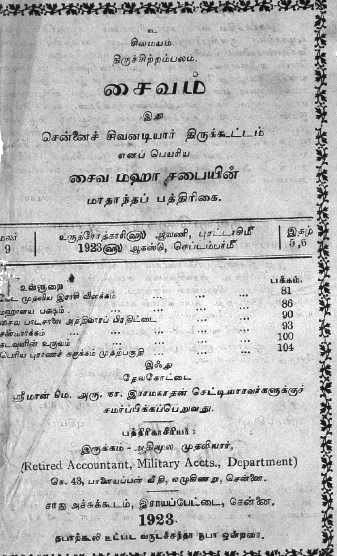 உ
சிவமயம்
திருச்சிற்றம்பலம்.
சைவம்
இது
சென்னைச் சிவனடியார் திருக்கூட்டம்
எனப் பெயரிய
சைவ மஹா சபையின்
மாதாந்தப் பத்திரிகை.
9 1923 ஆகஸ்டு, செப்டம்பர்மீ 5,6
உள்ளுறை பக்கம்.
முதலிய இராசி விளக்கம் ... ... ... 81
... ... ... 86
சைவ பாடசாலை ... ... 90
சன்மார்க்கம் ... ... ... 93
கடவுளின் உருவம் ... ... ... 100
பெரிய புராணச் சுருக்கம் முதற்பகுதி ... ... 104
இஃது
தேவகோட்டை
ஸ்ரீமான் மெ. அரு. நா. இராமநாதன் செட்டியாரவர்களுக்குச்
சமர்ப்பிக்கப்பெறுவது.
பத்திரிகாசிரியர்:
இருக்கம் - ஆதிமூல முதலியார்,
(Retired Accountant, Military Accts., Department)
நெ. 43, வீதி, ஏழுகிணறு, சென்னை.
சாது அச்சுக்கூடம், இராயப்பேட்டை, சென்னை.
1923.
தபாற்கூலி உட்பட வருடச்சந்தா ரூபா ஒன்றரை.